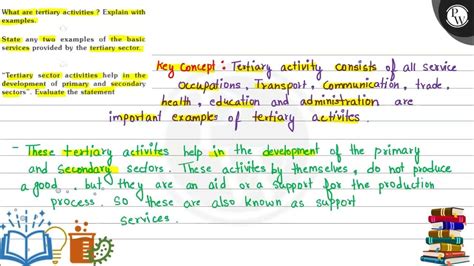 What are tertiary activities ? Explain with
examples.
State any two examples of the basic
services provided by the tertiary sector.
"Tertiary sector activities help in the
development of primary and secondary
sectors". Evaluate the statement
Key Concept : Tertiary activity consists of all service
occupations, Transport, Communication, trade,
health, education and administration are
important examples of tertiary activites.
- These tertiary activites help in the development of the primary
and secondary sectors. These activites by themselves, do not produce
a good.. but they are an aid or a support for the production
process. So these are also known as support
services.
PW